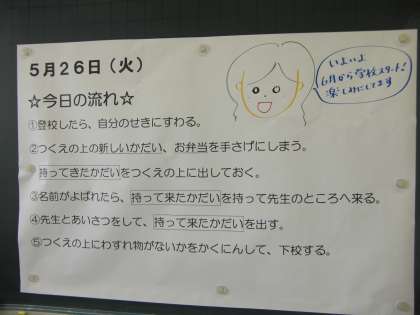 5月26日（火）
☆今日の流れ☆
①登校したら、自分のせきにすわる。
②つくえの上の新しいかだい、お弁当を手さげにしまう。
持ってきたかだいをつくえの上に出しておく。
③名前がよばれたら、持って来たかだいを持って先生のところへ来る。
④先生とあいさつをして、持って来たかだいを出す。
⑤つくえの上にわすれ物がないかをかくにんして、下校する。
いよいよ
6月から学校スタート!
楽しみにしてます